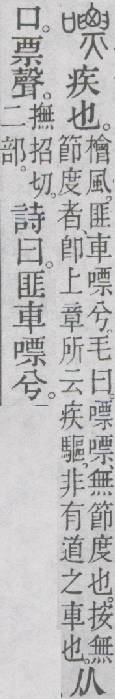 嘌疾也。
檜風。匪車嘌兮。毛曰。嘌嘌無節度也。按無
節度者、卽上章所云疾驅、非有道之車也。
从
口。票聲。
撫招切。
二部。
詩曰。匪車嘌兮。